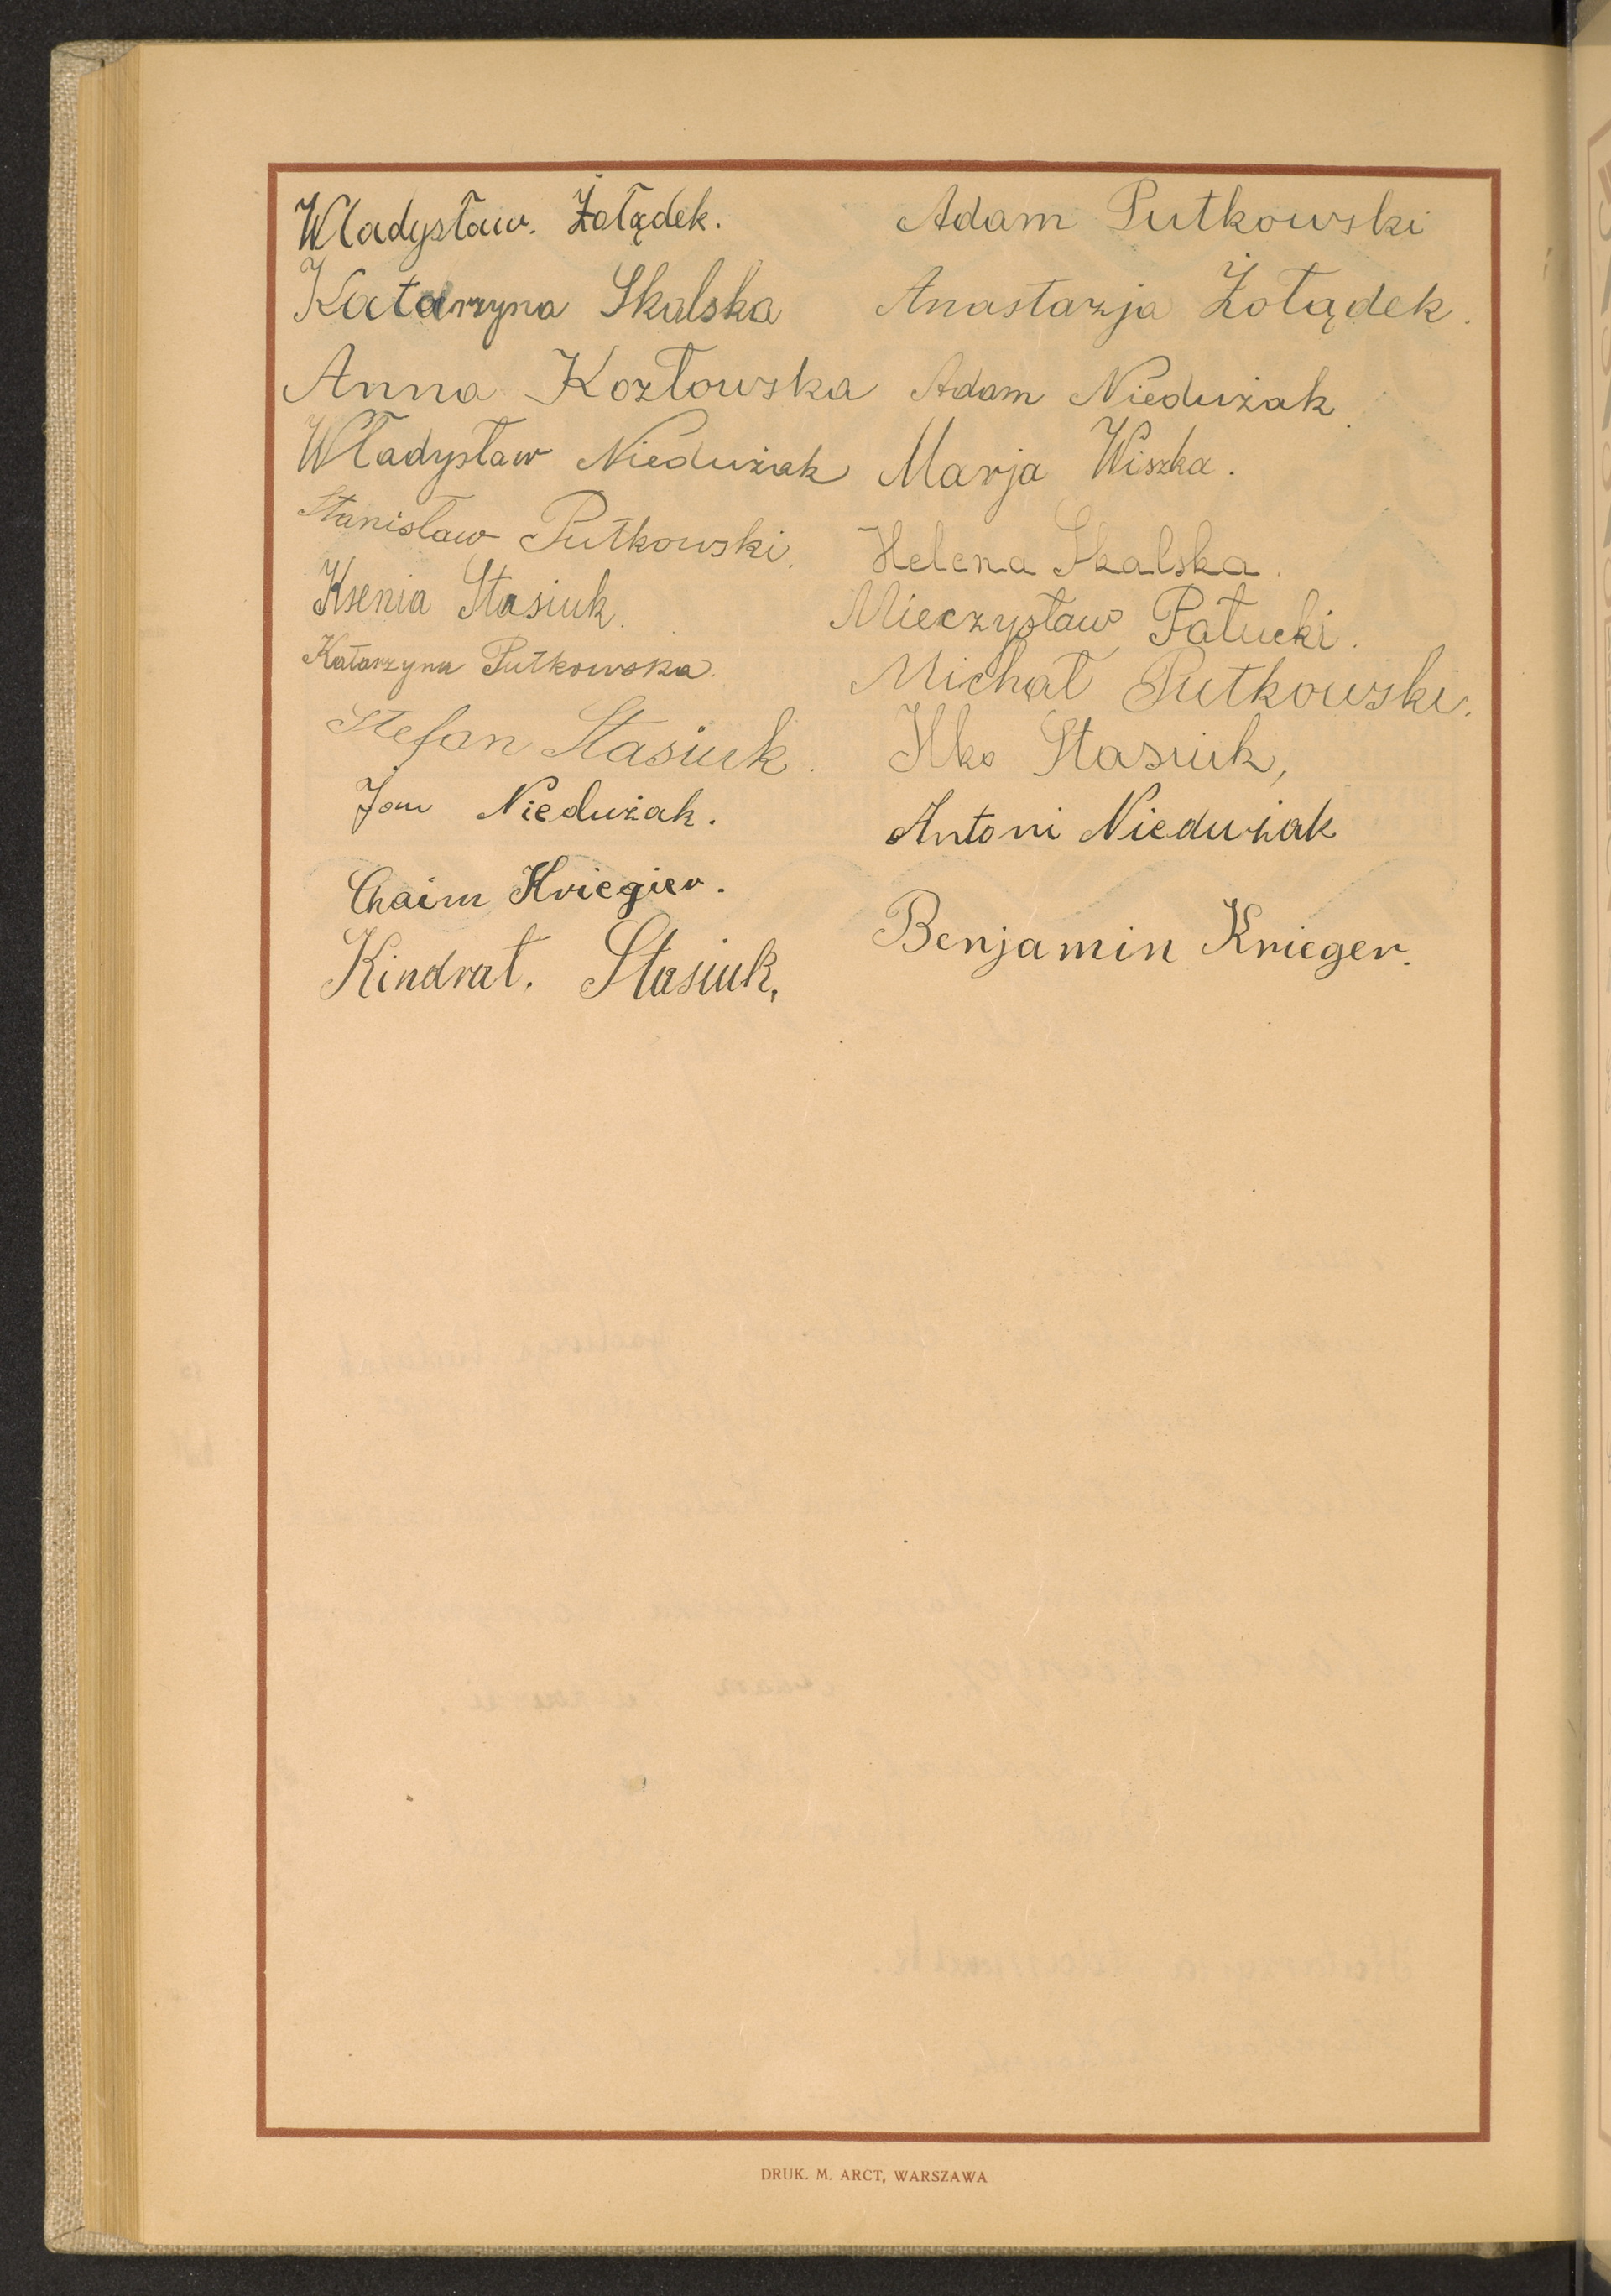 Władysław. Żołądek.
Katarzyna Skalska
Anna Kozłowska
Władysław Niedużak
Stanisław Putkowski.
Ksenia Stasiuk.
Katarzyna Putkowska.
Stefan Stasiuk.
Jan Niedużak.
Chaim Kriegier.
Kindrat. Stasiuk,
Adam Putkowski
Anastazja Żołądek.
Adam Niedużak.
Marja Wiszka.
Helena Skalska.
Mieczysław Pałucki.
Michał Putkowski.
Ilko Stasiuk,
Antoni Niedużak
Benjamin Krieger.
DRUK. M. ARCT, WARSZAWA